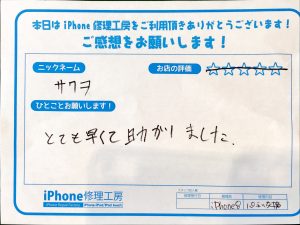 本日はiPhone修理工房をご利用頂きありがとうございます!
ご感想をお願いします!
ニックネーム
サワヲ
お店の評価
☆☆☆☆☆
ひとことお願いします!
とても早くて助かりました.
iPhone修理工房
iPhone8